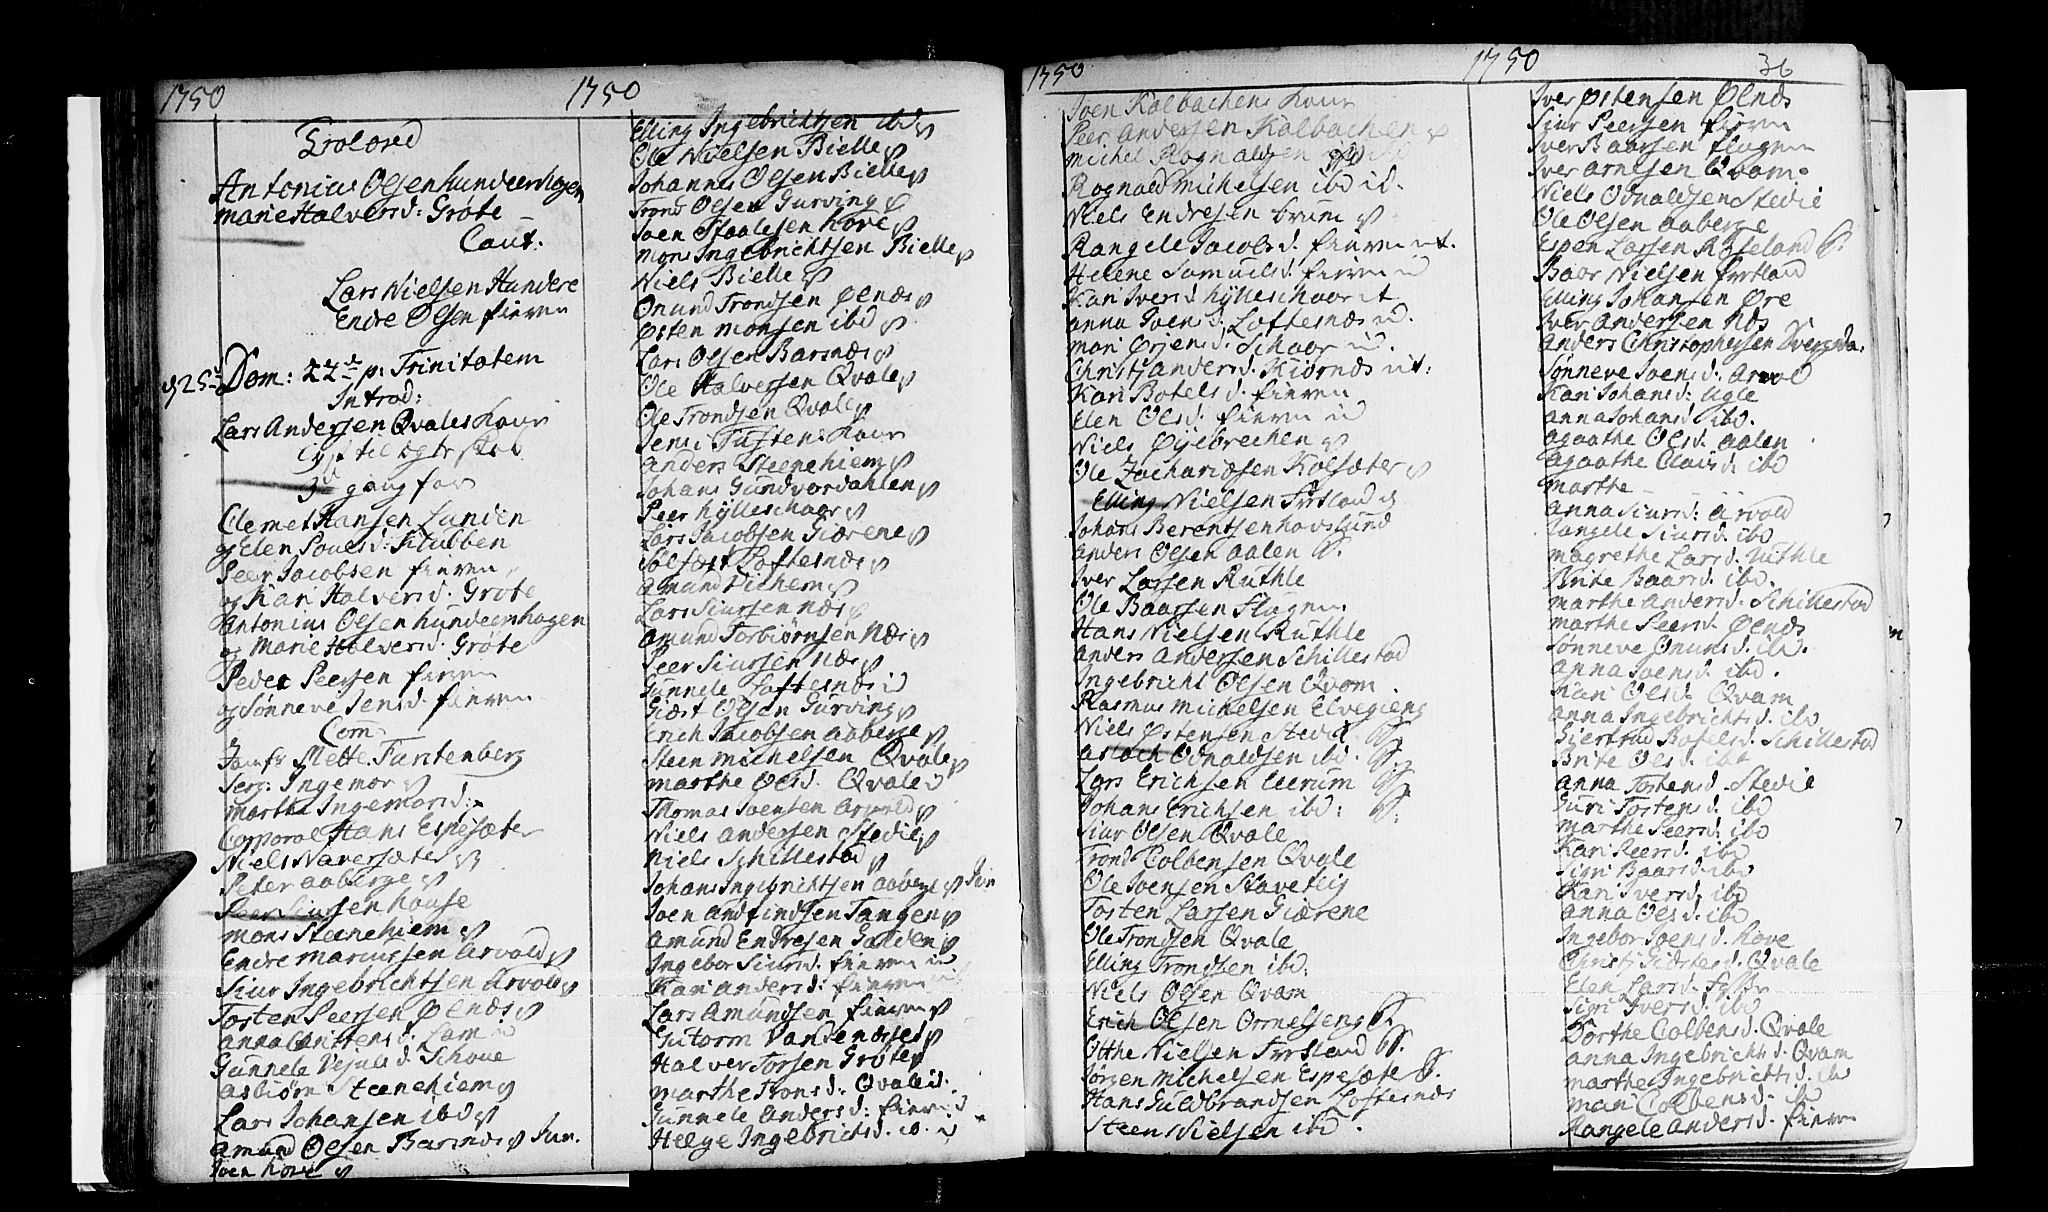 1750
1750
Trolored
Antonius Olsen Hundershagen
Marie Halversd: Grøte
Caut:
Lars Nielsen Hundere
Endre Olsen fieren
Dom: 22 p: Trinitatem
Introd:
Lars Andersen Qvales Kone
3 gang for
Clemet Hansen Lunden
og Elen Povelsd: Stubben
Peer Jacobsen fieren
og Kari Halversd. Grøte
Antonius Olsen Hundershagen
og Marie Halversd. Grøte
Peder Peersen fieren
og Sønneve Jensd. fieren
Com:
Jomfr Mette Furstenberg
Serg: Ingemor
Martha Ingemorsd:
Corporal Hans Espesæter
Niels Navarsæter
Peter Aaberge
Peer Siursen house
Mons Steenehiem
Endre Marcussen Arvold
Siur Ingebrichtsen Arvold
Torsten Peersen Ølnæs
Anna
Gunnele
Asbiørn Steenehiem
Lars Johansen ibd
Amund Olsen Barsnæs Jun.
Joen Hove
Elling Ingebrichtsen ibd
Ole Nielsen Bielle
Johannes Olsen Bielle
Trond Olsen Gurving
Joen Staalesen Hove
Mons Ingebrichtsen Bielle
Niels Bielle
Onund Trondsen Ølnæs
Østen Monsen ibd
Lars Olsen Barsnæs
Ole Halversen Qvale
Ole Trondsen Qvale
Jens Tuftens Kone
Anders Steenehiem
Johans Gundvordahlen
Peer Hylleschaar
Lars Jacobsen Giærene
Sølfæst Loftesnæs
Amund
Lars Siursen Næs
Amund Torbiørnsen Næs
Peer Siursen Næs
Gunnele Loftesnæs id
Giæst Olsen Gurving
Erich Jacobsen Aaberge
Steen Michelsen Qvale
Marthe Olsd. Qvale id
Thomas Joensen Arvold
Niels Andersen Stedie
Niels Schillestad
Johans Ingebrichtsen Aaberge Jun
Joen Andfindsen Tangen
Amund Endresen Galden
Ingebor Siursd. fieren id
Kari Andersd: fieren
Lars Amundsen fieren
Gutorm Vandenæset
Halver Torsen Grøte
Marthe Tronsd. Qvale id.
Gunnele Andersd: fieren id
Helge Ingebrichtsd. ib. id
1750
1750
36
Joen Kalbachens Kone
Peer Andersen Kalbachen
Michel Rognaldsen
Rognald Michelsen ibd id.
Niels Endresen brum
Rangele Jacobsd. fieren it.
Helene Samuelsd. fieren id
Kari Iversd Hylleschaar it
Anna Joensd. Loftesnæs id.
Mari Ørjensd. Schaar id.
Christj Andersd. Kiørnæs it:
Kari Botelsd. fieren
Elen Olsd: fieren id
Niels Øyebrechen
Ole Zachariasen Kolsæter
Elling Nielsen Fyrsland
Johans Berentsen Hovslund
Anders Olsen Aalen
Iver Larsen Ruthle
Ole Baarsen Flugen
Hans Nielsen Ruthle
Anders Andersen Schillestad
Ingebricht Olsen Qvam
Rasmus Michelsen Elvegieng
Niels Østensen Stedi
Aslach Odnaldsen ibd.
Lars Erichsen Eerum
Johans Erichsen ibd:
Siur Olsen Qvale
Trond Colbensen Qvale
Ole Joensen Staveteig
Torsten Larsen Giærene
Ole Trondsen Qvale
Elling Trondsen ibd.
Niels Olsen Qvam
Erich Olsen Ormelseng
Otthe Nielsen Fyrsland
Jørgen Michelsen Espesæter
Hans Guldbrandsen Loftesnæs
Steen Nielsen ibd.
Iver Østensen Ølnæs
Siur Peersen fieren
Iver Baarsen Flugen
Iver Arnesen Qvam
Niels Odnaldsen Stedie
Ole Olsen Aaberge
Espen Larsen
Baar Nielsen Fyrsland
Elling Johansen Øre
Iver Andersen Næs
Anders Christophersen
Sønneve Joensd. Arvol
Kari Johansd: Ugle
Anna Johansd ibd.
Agaathe Olsd. Aalen
Agaathe Clausd: ibd
Marthe
Anna Siursd: Arvold
Rangele Siursd. ibd
Magrethe Larsd. Ruthle
Brite Baarsd. ibd.
Marthe Andersd. Schillestad
Marthe Peersd. Ølnæs
Sønneve Onunsd. ibd.
Anna Joensd. ibd.
Kari Olsd. Qvam
Anna Ingebrichtsd. ibd
Giertrud Botelsd. Schillestad
Brite Olsd. ibd
Anna Torstensd. Stedie
Guri Torstensd. ibd
Marthe Peersd: ibd
Kari Peersd. ibd
Sigri Baarsd. ibd
Kari Iversd. ibd
Anna Olsd. ibd
Ingebor Joensd. Hove
Christj Giæstesd. Qvale
Elen Larsd.
Sigri Iversd. ibd
Dorthe Colbensd. Qvale
Anna Ingebrichtsd. Qvam
Marthe Ingebrichtsd. ib
Mari Colbensd. ib
Rangele Andersd. fieren